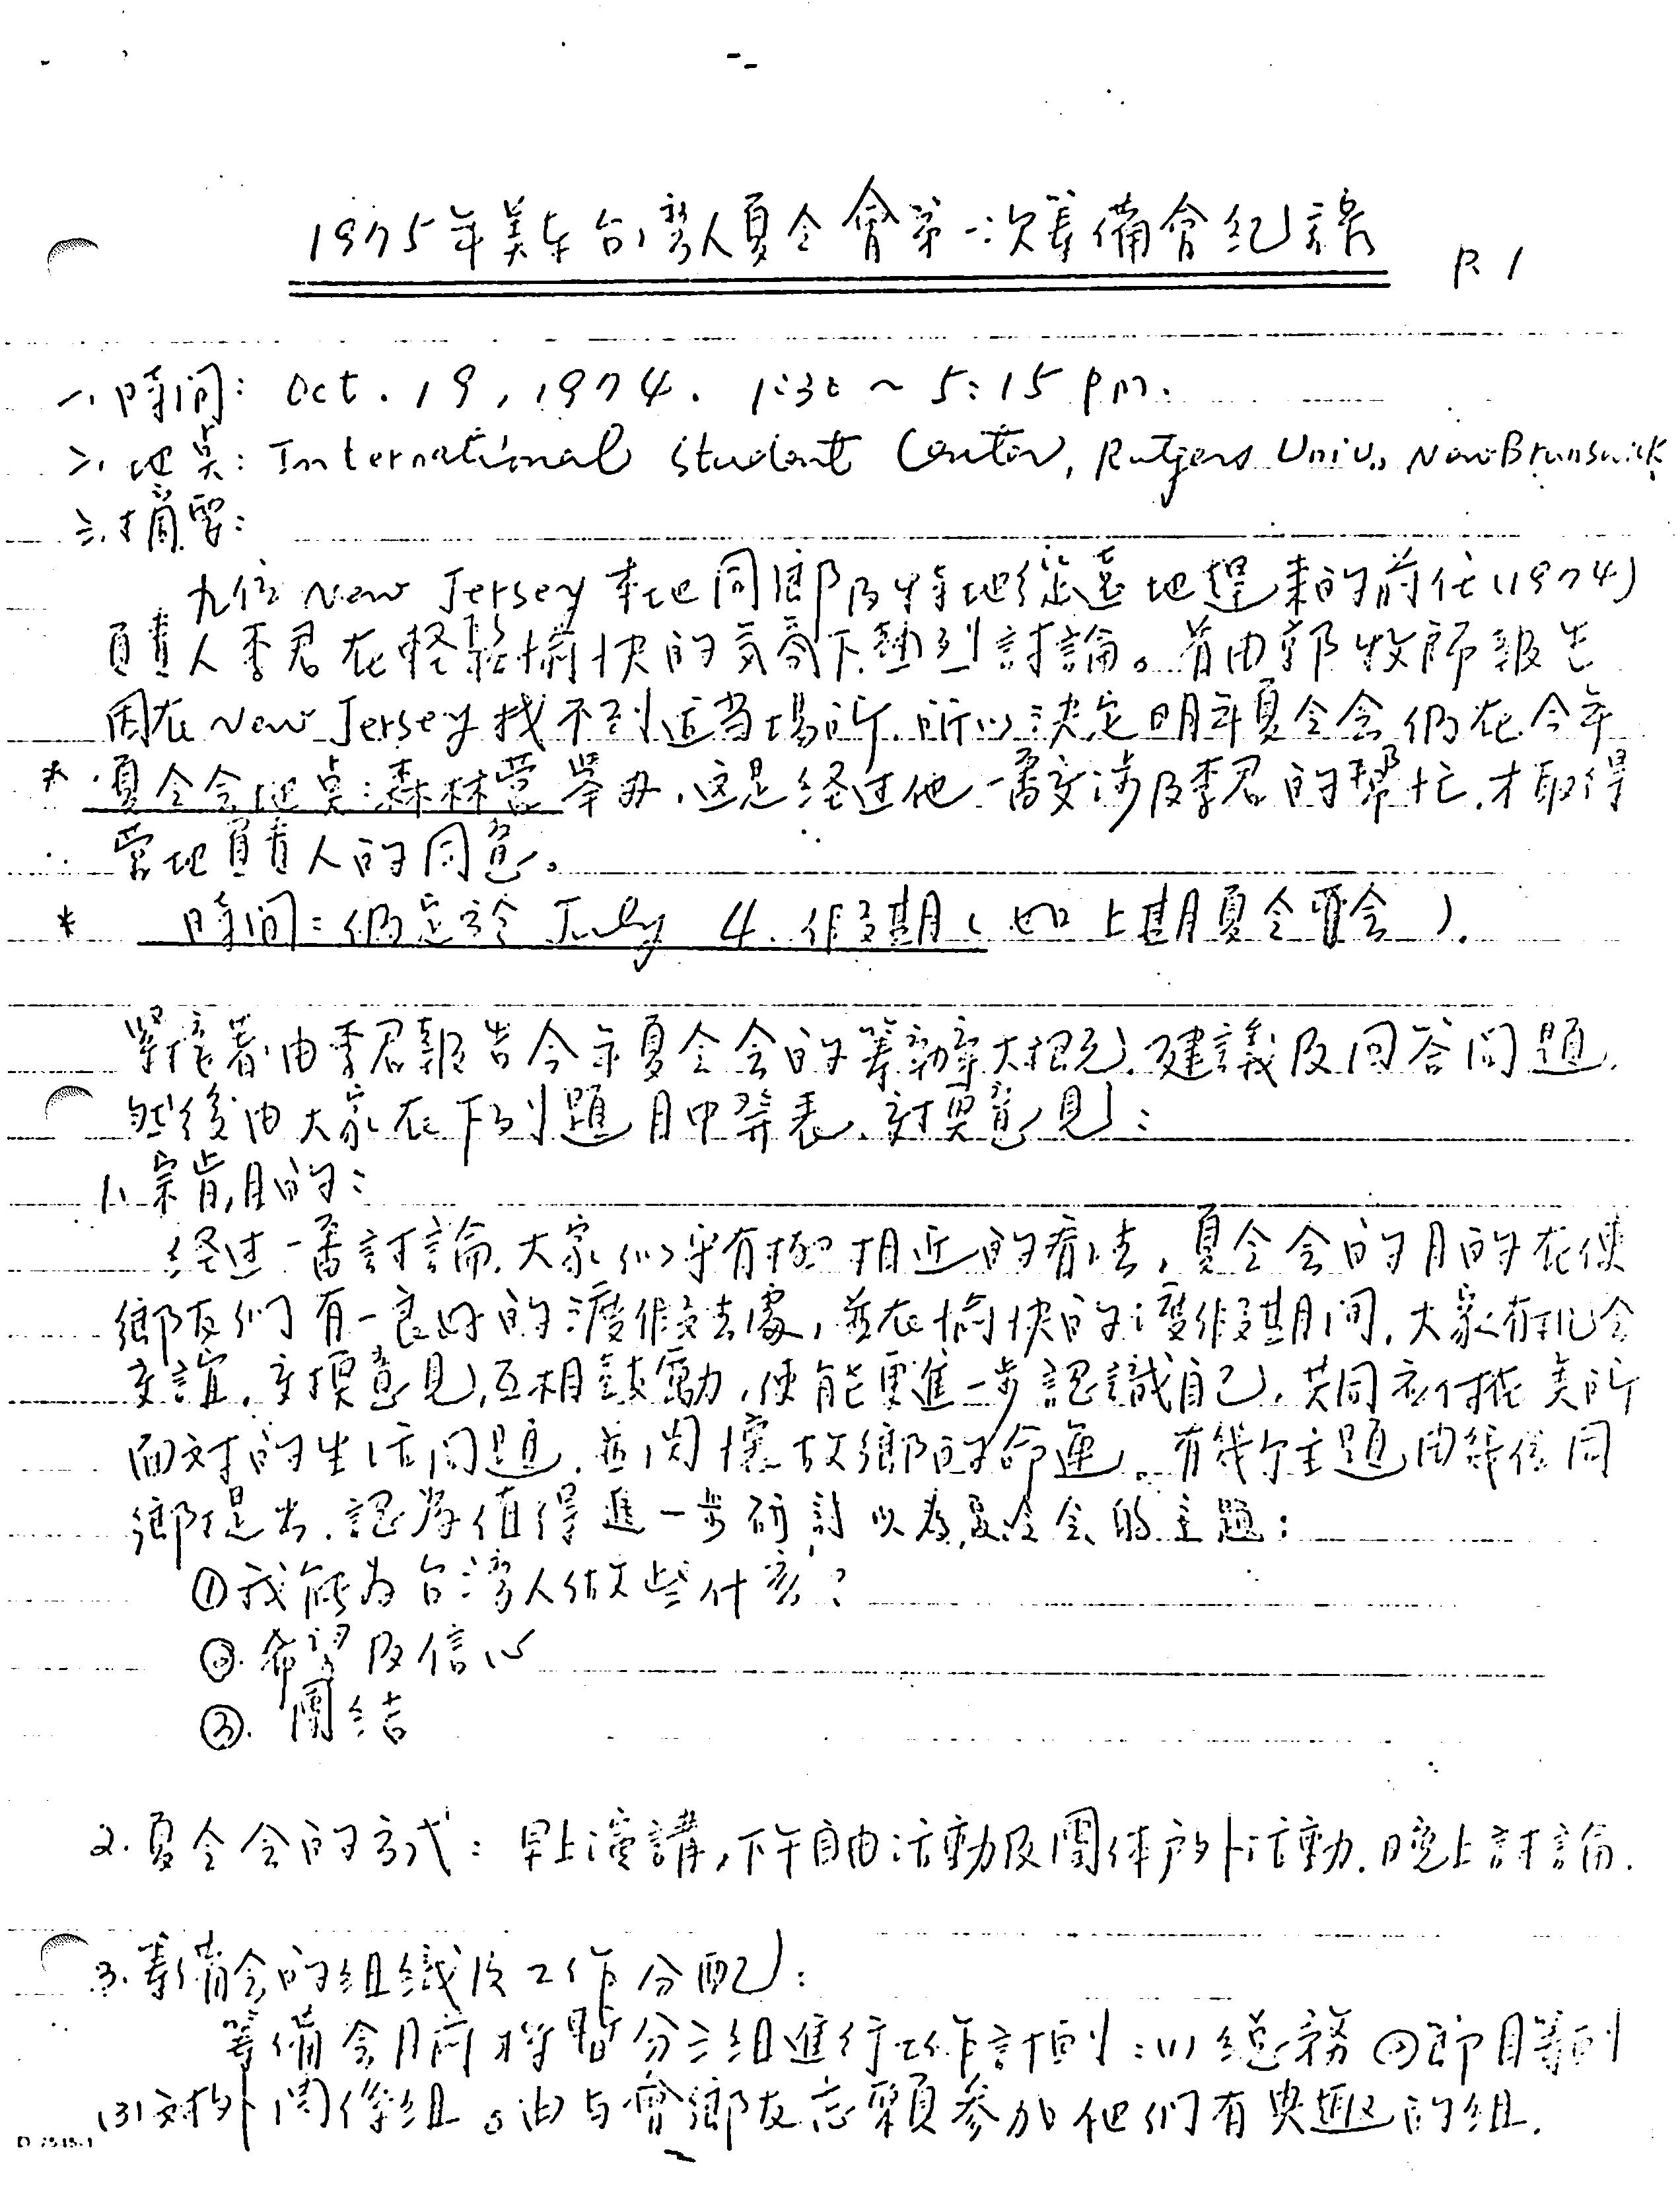 1975年美東台湾人夏令會第一次筹備會纪録
P. 1
一、時间: Oct. 19, 1974. 1:30 ~ 5:15 pm.
二、地点: International Student Center, Rutgers Univ., New Brunswick
三、摘要:
九位 New Jersey 本地同鄉及特地從遠地趕来的前任(1974)
負責人李君在輕鬆愉快的気氛下熱烈討論。首由郭牧師報告
因在 New Jersey 找不到适当場所, 所以決定明年夏令会仍在今年
* 夏令会地点:森林营举办, 这是经过他一番交涉及李君的幫忙, 才取得
营地負責人的同意。
* 時间:仍定於 July 4. 假期(如上期夏令会).
緊接著由李君報告今年夏令会的筹辦大概况, 建議及回答问題.
然後由大家在下列題目中發表, 交換意見:
1. 宗旨, 目的:
经过一番討論, 大家似乎有極相近的看法, 夏令会的目的在使
鄉友们有一良好的渡假去處, 並在愉快的渡假期间, 大家有机会
交誼, 交換意見, 互相鼓勵, 使能更進一步認識自己, 共同应付在美所
面对的生活问題, 並関懷故鄉的命運。有幾个主題由幾位同
鄉提出, 認為值得進一步研討以為夏令会的主題:
①我能为台湾人做些什麼?
②. 希望及信心
③. 團結
2. 夏令会的方式: 早上演講, 下午自由活動及團体户外活動, 晚上討論.
3. 筹備会的组織及工作分配:
筹備会目前将暫分三组進行工作計劃:(1)總務 (2)節目筹劃
(3)对外関係组。由与會鄉友志願参加他们有興趣的组.
D 7515-1